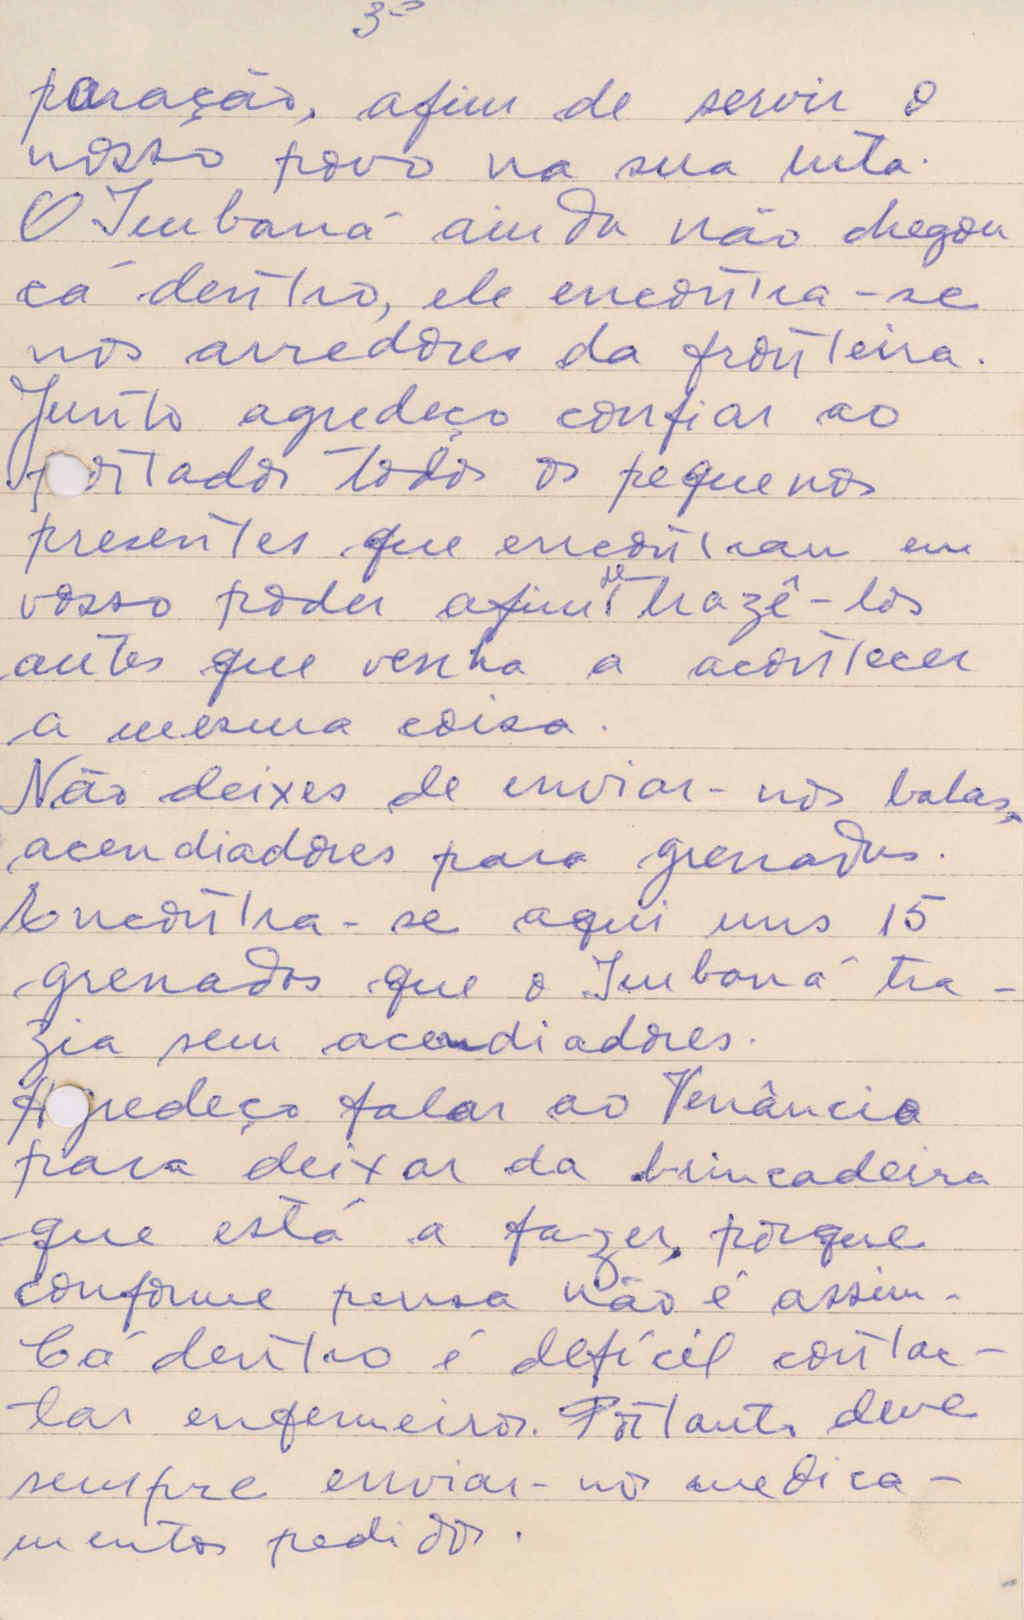 3º
paração, afim de servir o
nosso povo na sua luta.
O Imbaná ainda não chegou
cá dentro, ele encontra-se
nos arredores da fronteira.
Junto agredeço confiar ao
portador todos os pequenos
presentes que encontram em
vosso poder afim de trazê-los
antes que venha a acontecer
a mesma coisa.
Não deixes de enviar-nos balas,
acendiadores para grenados.
Encontra-se aqui uns 15
grenados que o Imbaná tra-
zia sem acendiadores.
Agredeço falar ao Venâncio
para deixar da brincadeira
que está a fazer, porque
conforme pensa não é assim.
Cá dentro é defícil contac-
tar enfermeiros. Portanto deve
sempre enviar-nos medica-
mentos pedidos.